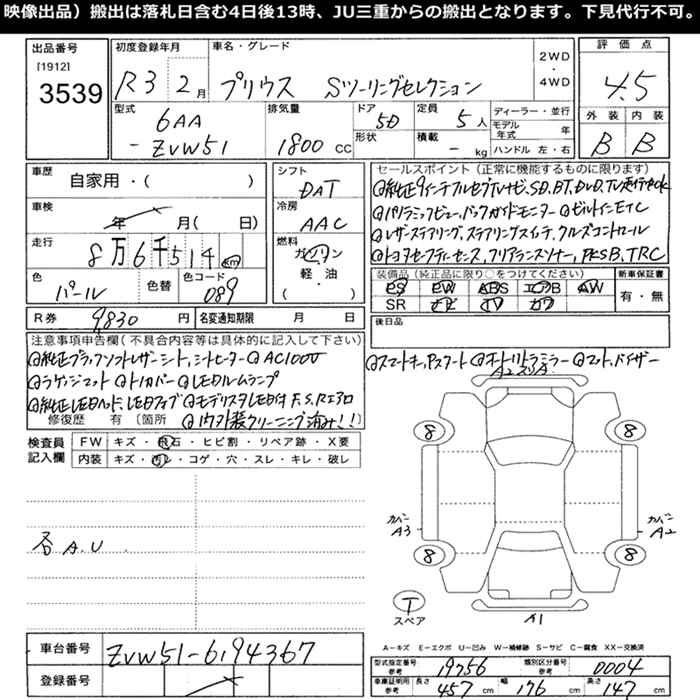 映像出品）搬出は落札日含む4日後13時、JU三重からの搬出となります。下見代行不可。
出品番号 [1912] 3539
初度登録年月 R3 2月
車名・グレード プリウス Sツーリングセレクション
2WD・4WD
評価点 4.5
外装 内装
B B
型式 6AA-ZVW51
排気量 1800 CC
ドア 5D
形状
定員 5人
積載 - kg
ディーラー・並行
モデル年式 年
ハンドル 左・右
車歴 自家用・( )
車検 年 月( 日)
走行 8万6千514 km
色 パール 色替 色コード 089
シフト DAT
冷房 AAC
燃料 ガソリン
軽・油
( )
R券 9830円 名変通知期限 月 日
セールスポイント（正常に機能するものに限ります）
純正9インチフルセグTVナビ、SD、BT、DVD、TV走行中ok
パノラミックビュー、バックガイドモニター ビルトインETC
レザーステアリング、ステアリングスイッチ、クルーズコントロール
トヨタセーフティセンス、クリアランスソナー、PKSB、TRC
装備品（純正品に限り○をつけてください）
PS PW ABS エアB AW
SR ナビ TV カワ
新車保証書 有・無
後日品
注意事項申告欄（不具合内容等は具体的に記入して下さい）
純正ブラックソフトレザーシート、シートヒーター AC100V
ラゲージマット トノカバー LEDルームランプ
純正LEDヘッド、LEDフォグ モデリスタLED付 F、S、Rエアロ
修復歴 有〔箇所 内外装クリーニング済み!!
スマートキー、Pスタート オートリトラミラー マット、バイザー
検査員記入欄
FW キズ・飛石・ヒビ割・リペア跡・X要
内装 キズ・汚レ・コゲ・穴・スレ・キレ・破レ
各A.U
8 8
カバー A3
カバー A2
8 8
T
スペア
A1
A-キズ E-エクボ U-凹み W-補修跡 S-サビ C-腐食 XX-交換済
車台番号 ZVW51-6194367
登録番号
型式指定番号 参考 19756 類別区分番号 参考 0004
車庫証明用 参考 長さ 457 cm 幅 176 cm 高さ 147 cm